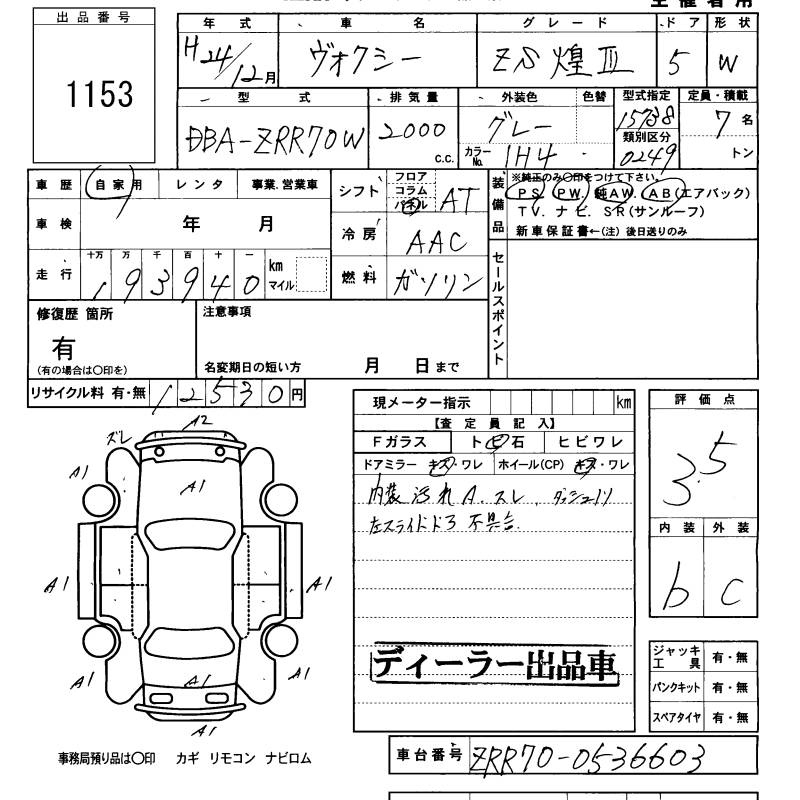 主催者用
出品番号
1153
年式 車名 グレード ドア 形状
H24/12月 ヴォクシー ZS煌III 5 W
型式 排気量 外装色 色替 型式指定 定員・積載
DBA-ZRR70W 2000 c.c. グレー 15738 7名
カラーNo. 1H4 類別区分 0249 トン
車歴 自家用 レンタ 事業.営業車
車検 年 月
走行 十万 万 千 百 十 一 km マイル
1 9 3 9 4 0
シフト フロア コラム パネル AT
冷房 AAC
燃料 ガソリン
装備品 ※純正のみ〇印をつけて下さい。
PS. PW. 純AW. AB(エアバック)
TV. ナビ. SR(サンルーフ)
新車保証書←(注) 後日送りのみ
セールスポイント
修復歴 箇所
有
(有の場合は〇印を)
注意事項
名変期日の短い方 月 日まで
リサイクル料 有・無 12530円
現メーター指示 km
【査定員記入】
Fガラス ト ビ 石 ヒビワレ
ドアミラー キズ・ワレ ホイール(CP) キズ・ワレ
内装 汚れ A. スレ. ダッシュ
左スライドドア 不具合
ディーラー出品車
評価点
3.5
内装 外装
b C
ジャッキ工具 有・無
パンクキット 有・無
スペアタイヤ 有・無
ズレ A2
A1 A1
A1
A1 A1
A1 A1 A1
A1
事務局預り品は〇印 カギ リモコン ナビロム
車台番号 ZRR70-0536603